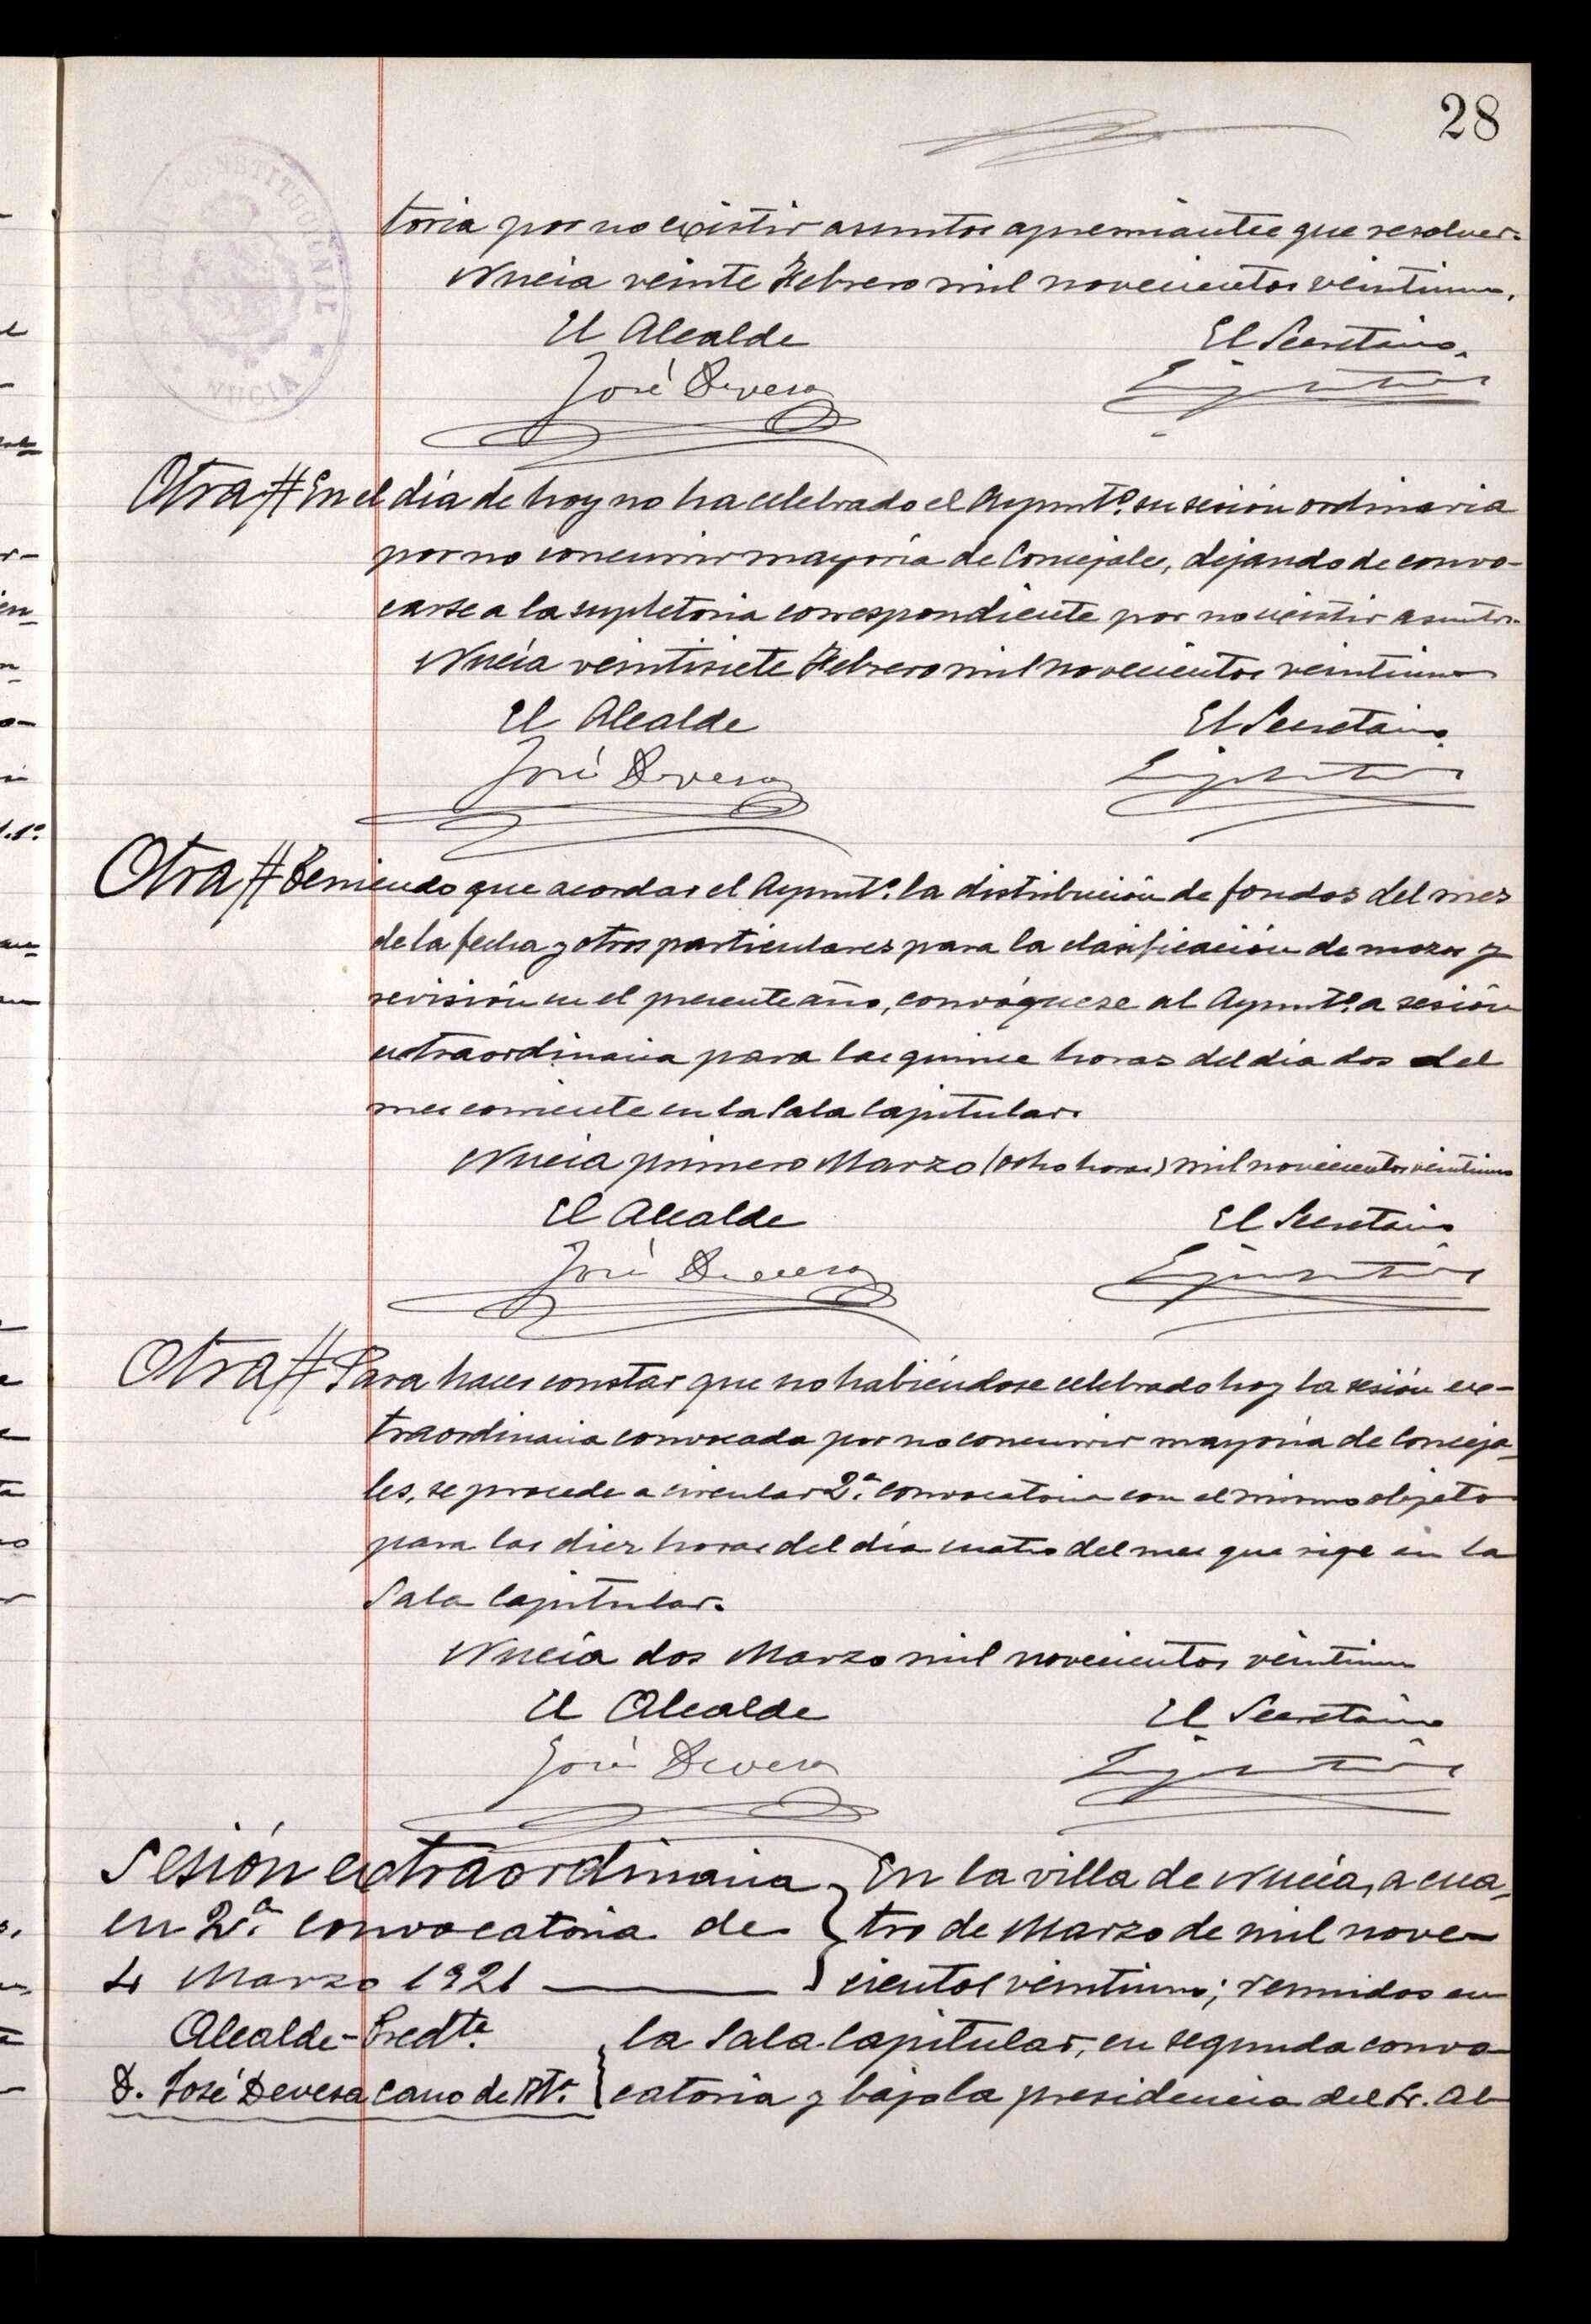 28
CONSTITUCIONAL
NUCIA
toria por no existir asuntos apremiantes que resolver.
Nucia veinte Febrero mil novecientos veintiuno.
El Alcalde El Secretario.
José Devesa
Otra # En el día de hoy no ha celebrado el Ayuntº. su sesión ordinaria
por no concurrir mayoría de Concejales, dejando de convo-
carse a la supletoria correspondiente por no existir asuntos.
Nucía veintisiete Febrero mil novecientos veintiuno
El Alcalde El Secretario
José Devesa
Otra # Teniendo que acordar el Ayuntº. la distribución de fondos del mes
de la fecha y otros particulares para la clasificación de mozos y
revisión en el presente año, convóquese al Ayuntº. a sesión
extraordinaria para las quince horas del día dos del
mes corriente en la Sala Capitular.
Nucia primero Marzo (ocho horas) mil novecientos veintiuno
El Alcalde El Secretario
José Devesa
Otra # Para hacer constar que no habiéndose celebrado hoy la sesión ex-
traordinaria convocada por no concurrir mayoría de Conceja-
les, se procede a circular 2ª. convocatoria con el mismo objeto
para las diez horas del día cuatro del mes que rige en la
Sala Capitular.
Nucía dos Marzo mil novecientos veintiuno
El Alcalde El Secretario
José Devesa
Sesión extraordinaria
en 2ª. convocatoria de
4 Marzo 1921
Alcalde-Predte.
D. José Devesa Cano de Rta.
En la villa de Nucía, a cua-
tro de Marzo de mil nove-
cientos veintiuno; reunidos en
la Sala Capitular, en segunda convo-
catoria y bajo la presidencia del Sr. Al-